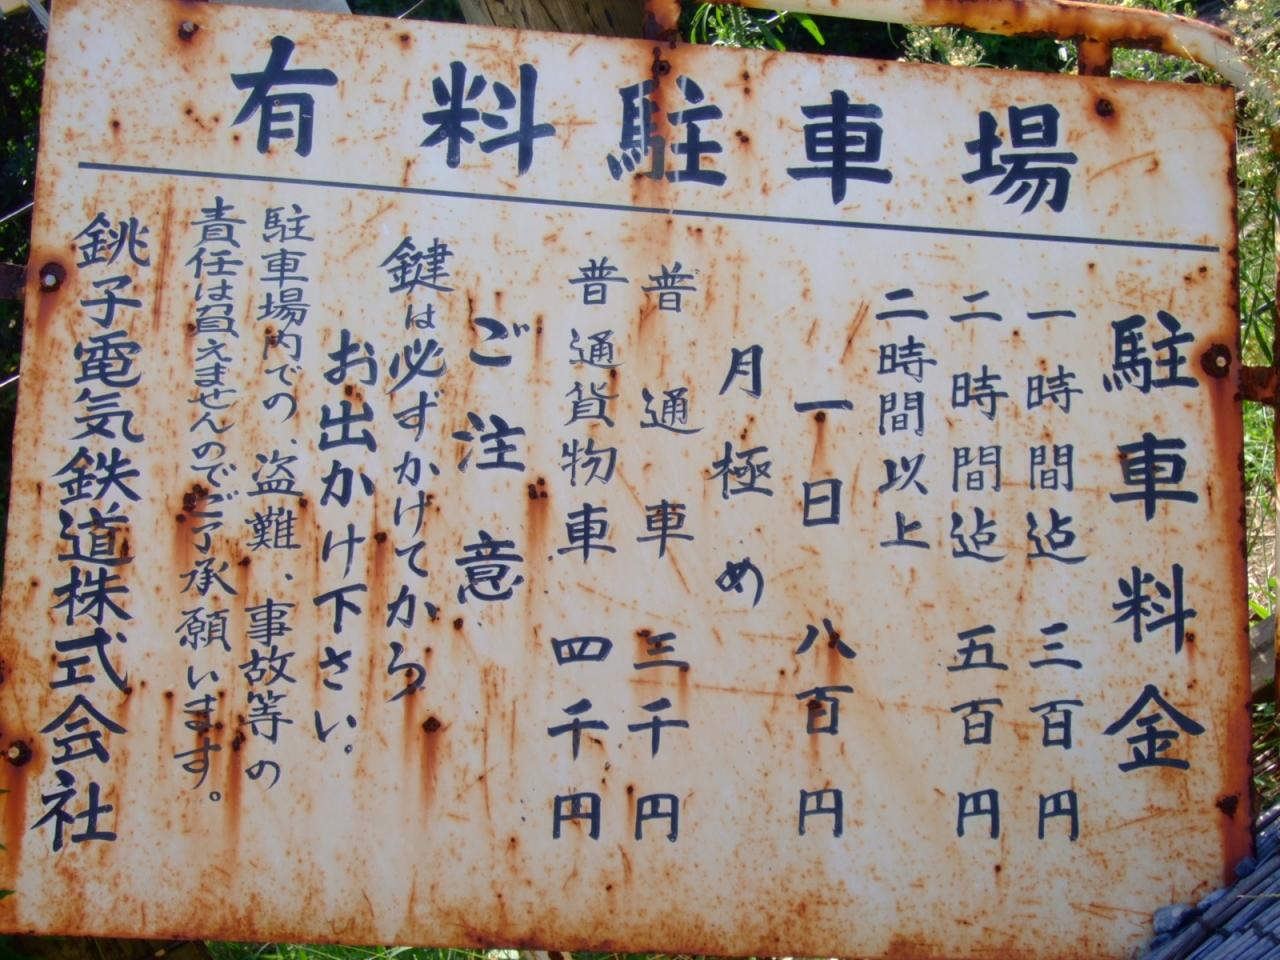 有料駐車場
駐車料金
一時間迠 三百円
二時間迠 五百円
二時間以上
一日 八百円
月極め
普通車 三千円
普通貨物車 四千円
ご注意
鍵は必ずかけてから
お出かけ下さい。
駐車場内での、盗難、事故等の
責任は負えませんのでご了承願います。
銚子電気鉄道株式会社